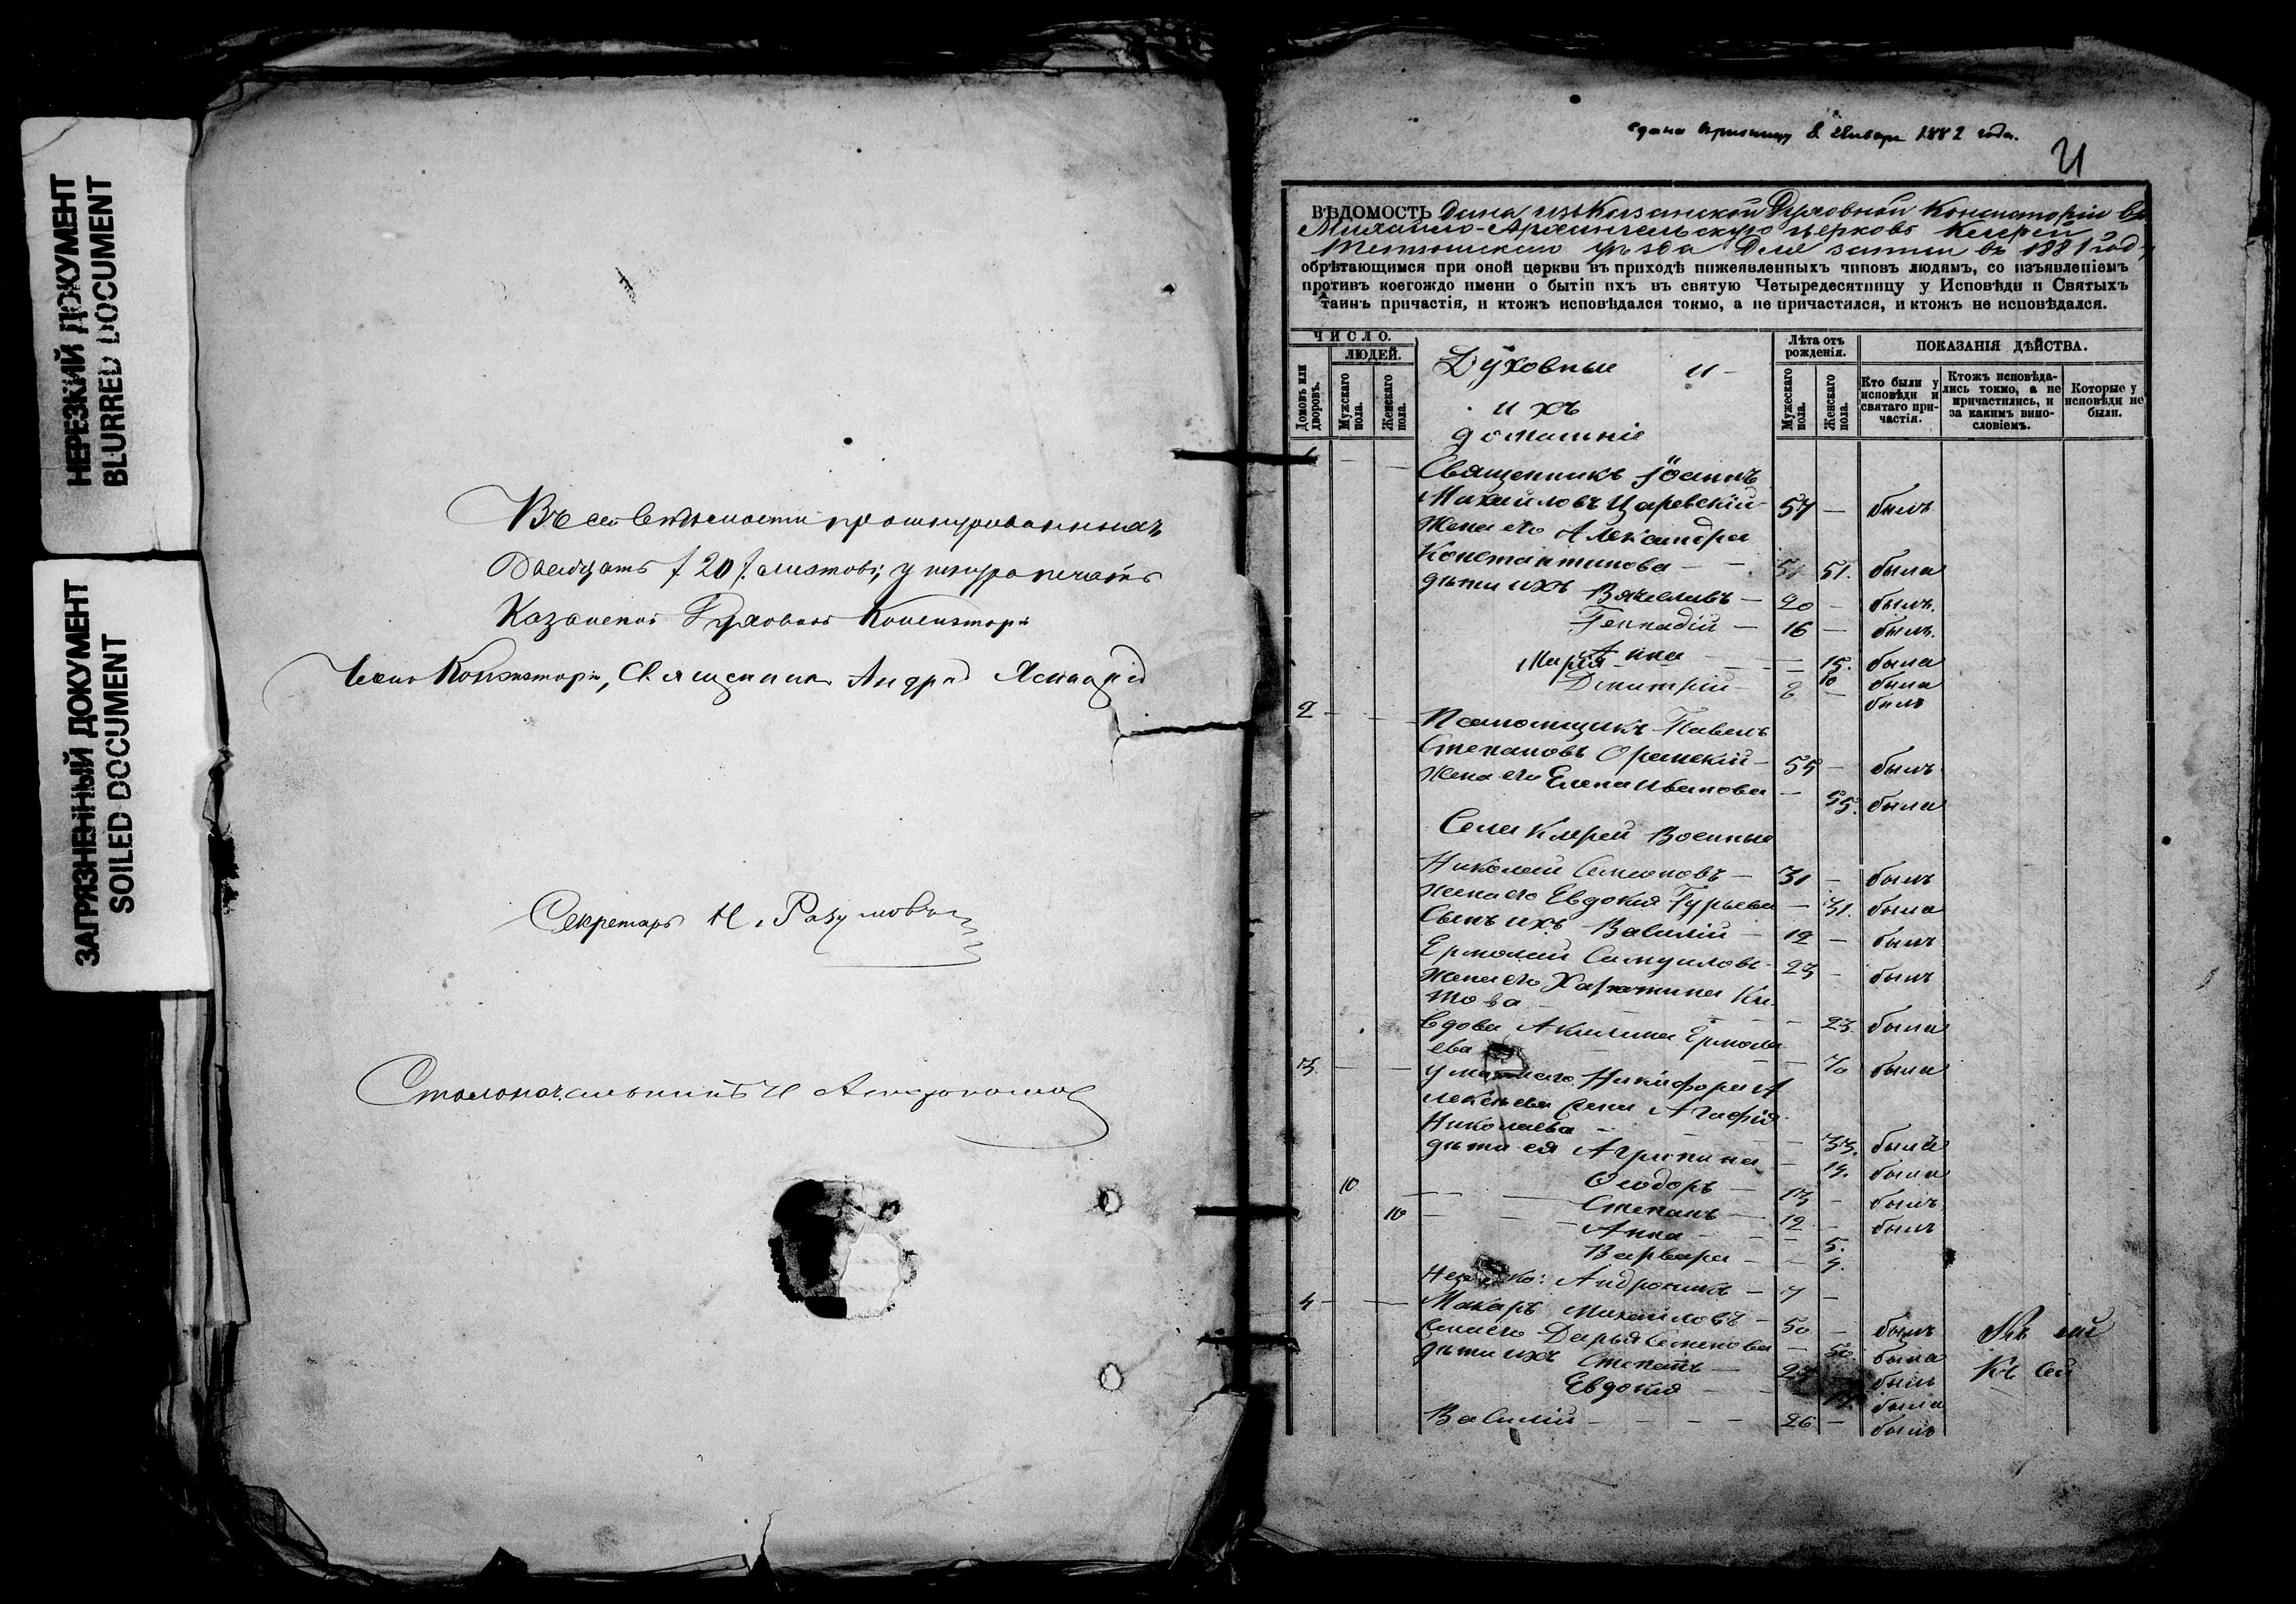 НЕРЕЗКИЙ ДОКУМЕНТ
BLURRED DOCUMENT
ЗАГРЯЗНЕННЫЙ ДОКУМЕНТ
SOILED DOCUMENT
Въ сей Ведомости прошнурованныхъ
Двадцать /20/ листовъ, у шнура печать
Казанской Духовной Консисторіи
Членъ Консисторіи, Священникъ Андрей
Секретарь Н. Разумовъ
Столоначальникъ И
8 Января 1882 года.
21
ВѢДОМОСТЬ Дана изъ Казанской Духовной Консисторіи въ
Михайло-Архангельскую церковь
Тетюшскаго уѣзда Для записи въ 1881 году
обрѣтающимся при оной церкви въ приходѣ нижеявленныхъ чиновъ людямъ, со изъявленіемъ
противъ коегождо имени о бытіи ихъ въ святую Четыредесятницу у Исповѣди и Святыхъ
таинъ причастія, и ктожъ исповѣдался токмо, а не причастился, и ктожъ не исповѣдался.
ЧИСЛО.
ЛЮДЕЙ.
Домовъ или дворовъ.
Мужскаго пола.
Женскаго пола.
Лѣта отъ рожденія.
Мужескаго пола.
Женскаго пола.
ПОКАЗАНІЯ ДѢЙСТВА.
Кто были у исповѣди и святаго причастія.
Ктожъ исповѣдались токмо, а не причастились, и за какимъ винословіемъ.
Которые у исповѣди не были.
Духовные и
ихъ
домашніе
1 Священникъ Іоаннъ
Михайловъ Царевскій 57 — былъ
Жена его Александра
Константинова — 51. была
дѣти ихъ Вячеславъ — 20 — былъ.
Геннадій — 16 — былъ.
Анна — 15. была
Марія — 10 была
Димитрій — 8 — былъ
2 Павелъ
Степановъ — 55 — былъ
Жена его Елена Иванова — 55. была
Села Военные
Николай Семеновъ — 31 — былъ
Жена его Евдокія Гурьева — 31. была
Сынъ ихъ Василій — 12 — былъ
Ермолай Самуиловъ 23 — былъ
Жена его Харитина Ки-
това — 23. была
Вдова Акилина Ермола
ева — 70 была
3 Никифора А
лексѣева жена Агафія
Николаева — 33. была
дѣти ея Агрипина — 14. была
10 Ѳеодоръ — 13 — былъ
10 Степанъ — 12 — былъ
Анна — 5.
Варвара — 4.
Андроникъ — 7 —
4 Макаръ Михайловъ — 50 — былъ
жена его Дарья Семенова — 50. была
дѣти ихъ Степанъ — 23 былъ
Евдокія — была
Василій — 26 — былъ